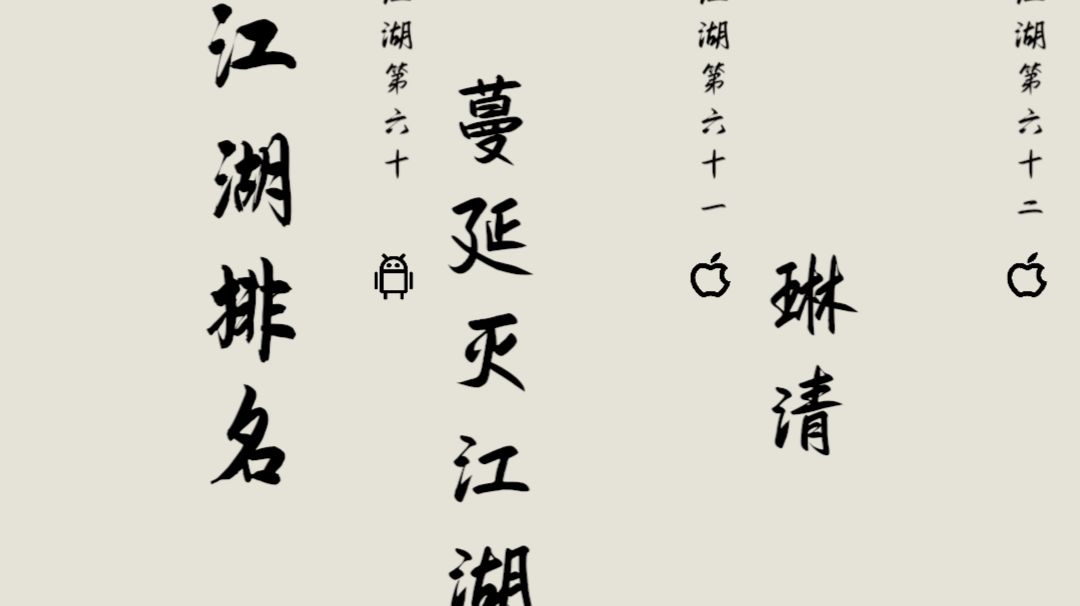 江湖排名
江湖第六十
蔓延灭江湖
江湖第六十一
琳清
江湖第六十二